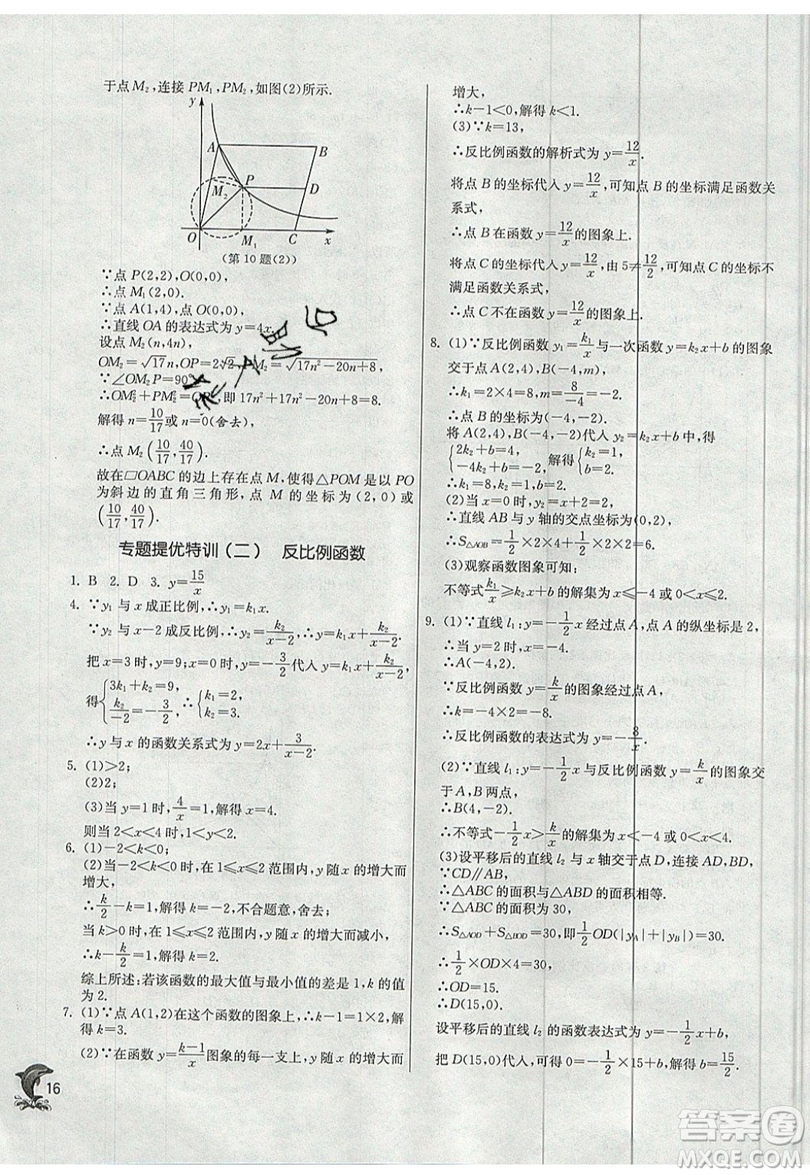 于点M₂,连接PM₁,PM₂,如图(2)所示.
y
A
B
M₂
P
D
O
M₁
C
x
(第10题(2))
∵点P(2,2),O(0,0),
∴点M₁(2,0).
∵点A(1,4),点O(0,0),
∴直线OA的表达式为y=4x.
设点M₂(n,4n),
OM₂=√17n,OP=2√2,PM₂=√(17n²-20n+8),
∵∠OM₂P=90°
∴OM₂²+PM₂²=OP²,即17n²+17n²-20n+8=8.
解得n=10/17或n=0(舍去),
∴点M₂(10/17,40/17).
故在▱OABC的边上存在点M,使得△POM是以PO
为斜边的直角三角形,点M的坐标为(2,0)或
(10/17,40/17).
专题提优特训(二) 反比例函数
1. B 2. D 3. y=15/x
4. ∵y₁与x成正比例,∴y₁=k₁x.
∵y₂与x-2成反比例,∴y₂=k₂/(x-2).∴y=k₁x+k₂/(x-2).
把x=3时,y=9;x=0时,y=-3/2代入y=k₁x+k₂/(x-2),
得{3k₁+k₂=9, k₂/-2=-3/2,∴{k₁=2, k₂=3.
∴y与x的函数关系式为y=2x+3/(x-2).
5. (1)>2;
(2)2;
(3)当y₁=y₂时,4/x=1,解得x=4.
则当2<x<4时,1<y₁<2.
6. (1)-2<k<0;
(2)当-2<k<0时,在1≤x≤2范围内,y随x的增大而
增大,
∴k/2-k=1,解得k=-2,不合题意,舍去;
当k>0时,在1≤x≤2范围内,y随x的增大而减小,
∴k-k/2=1,解得k=2.
综上所述:若该函数的最大值与最小值的差是1,k的值
为2.
7. (1)∵点A(1,2)在这个函数的图象上,∴k-1=1×2,
解得k=3.
(2)∵在函数y=(k-1)/x图象的每一支上,y随x的增大而
增大,
∴k-1<0,解得k<1.
(3)∵k=13,
∴反比例函数的解析式为y=12/x.
将点B的坐标代入y=12/x,可知点B的坐标满足函数关
系式,
∴点B在函数y=12/x的图象上.
将点C的坐标代入y=12/x,由5≠12/2,可知点C的坐标不
满足函数关系式,
∴点C不在函数y=12/x的图象上.
8. (1)∵反比例函数y₁=k₁/x与一次函数y₂=k₂x+b的图象
交于点A(2,4),B(-4,m),
∴k₁=2×4=8,m=8/-4=-2.
∴点B的坐标为(-4,-2).
将A(2,4),B(-4,-2)代入y₂=k₂x+b中,得
{2k₂+b=4, -4k₂+b=-2, 解得{k₂=1, b=2.
∴k₁=8,k₂=1,b=2.
(2)当x=0时,y₂=x+2=2.
∴直线AB与y轴的交点坐标为(0,2).
∴S△AOB=1/2×2×2+1/2×2×4=6.
(3)观察函数图象可知:
不等式k₁/x≥k₂x+b的解集为x≤-4或0<x≤2.
9. (1)∵直线l₁:y=-1/2x经过点A,点A的纵坐标是2,
∴当y=2时,x=-4.
∴A(-4,2).
∵反比例函数y=k/x的图象经过点A,
∴k=-4×2=-8.
∴反比例函数的表达式为y=-8/x.
(2)∵直线l₁:y=-1/2x与反比例函数y=k/x的图象交
于A,B两点,
∴B(4,-2).
∴不等式-1/2x>k/x的解集为x<-4或0<x<4.
(3)设平移后的直线l₂与x轴交于点D,连接AD,BD,
∵CD∥AB,
∴△ABC的面积与△ABD的面积相等.
∵△ABC的面积为30,
∴S△AOD+S△BOD=30,即1/2OD(|yA|+|yB|)=30.
∴1/2×OD×4=30,
∴OD=15.
∴D(15,0).
设平移后的直线l₂的函数表达式为y=-1/2x+b,
把D(15,0)代入,可得0=-1/2×15+b,解得b=15/2.
16
答案圈
MXQE.COM